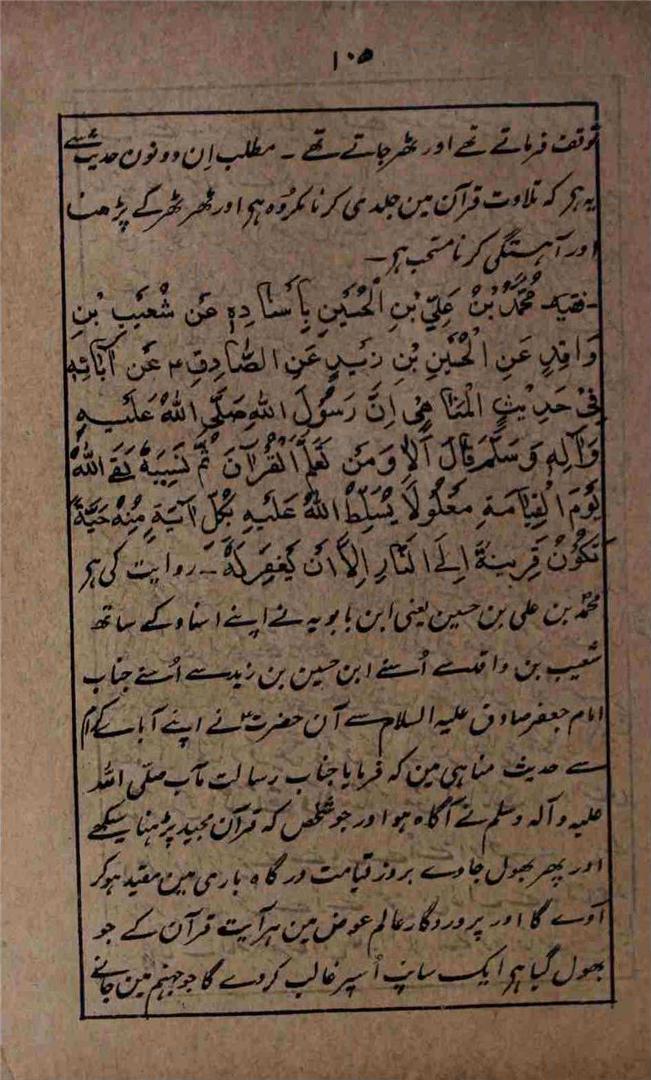 ۱۰۵
توقف فرماتے تھے اور ٹھر جاتے تھے ۔ مطلب اِن دونون حدیث سے
یہ ہر کہ تلاوت قرآن مین جلدی کرنا مکروہ ہر اور ٹھر ٹھر کے پڑھنا
اور آہستگی کرنا مستحب ہر ۔
۔فقیہ۔ مُحَمَّدُ بْنُ عَلِيِّ بْنِ الْحُسَيْنِ بِاَسْنَادِهٖ عَنْ شُعَيْبِ بْنِ
وَاقِدٍ عَنِ الْحُسَيْنِ بْنِ زَيْدٍ عَنِ الصَّادِقِ ؑ عَنْ آبَائِهٖ
فِيْ حَدِيْثِ الْمَنَاهِيْ اِنَّ رَسُوْلَ اللهِ صَلَّى اللهُ عَلَيْهِ
وَآلِهٖ وَسَلَّمَ قَالَ اَلَا وَمَنْ تَعَلَّمَ الْقُرْآنَ ثُمَّ نَسِيَهٗ لَقِيَ اللهُ
يَوْمَ الْقِيَامَةِ مَغْلُوْلًا يُسَلِّطُ اللهُ عَلَيْهِ بِكُلِّ آيَةٍ مِنْهُ حَيَّةً
تَكُوْنُ قَرِيْنَةً اِلَى النَّارِ اِلَّا اَنْ يَغْفِرَ لَهٗ ۔ روایت کی ہر
محمد بن علی بن حسین یعنی ابن بابویہ نے اپنے اسناد کے ساتھ
شعیب بن واقد سے اُسنے ابن حسین بن زید سے اُسنے جناب
امام جعفر صادق علیہ السلام سے آن حضرت ؑ نے اپنے آباے کرام
سے حدیث مناہی مین کہ فرمایا جناب رسالت مآب صلی اللہ
علیہ وآلہ وسلم نے آگاہ ہو اور جو شخص کہ قرآن مجید پڑہنا سیکھے
اور پھر بھول جاوے بروز قیامت درگاہ باری مین مقید ہوکر
آوے گا اور پروردگار عالم عوض مین ہر آیت قرآن کے جو
بھول گیا ہر ایک سانپ اُسپر غالب کر دے گا جو جہنم مین جانے